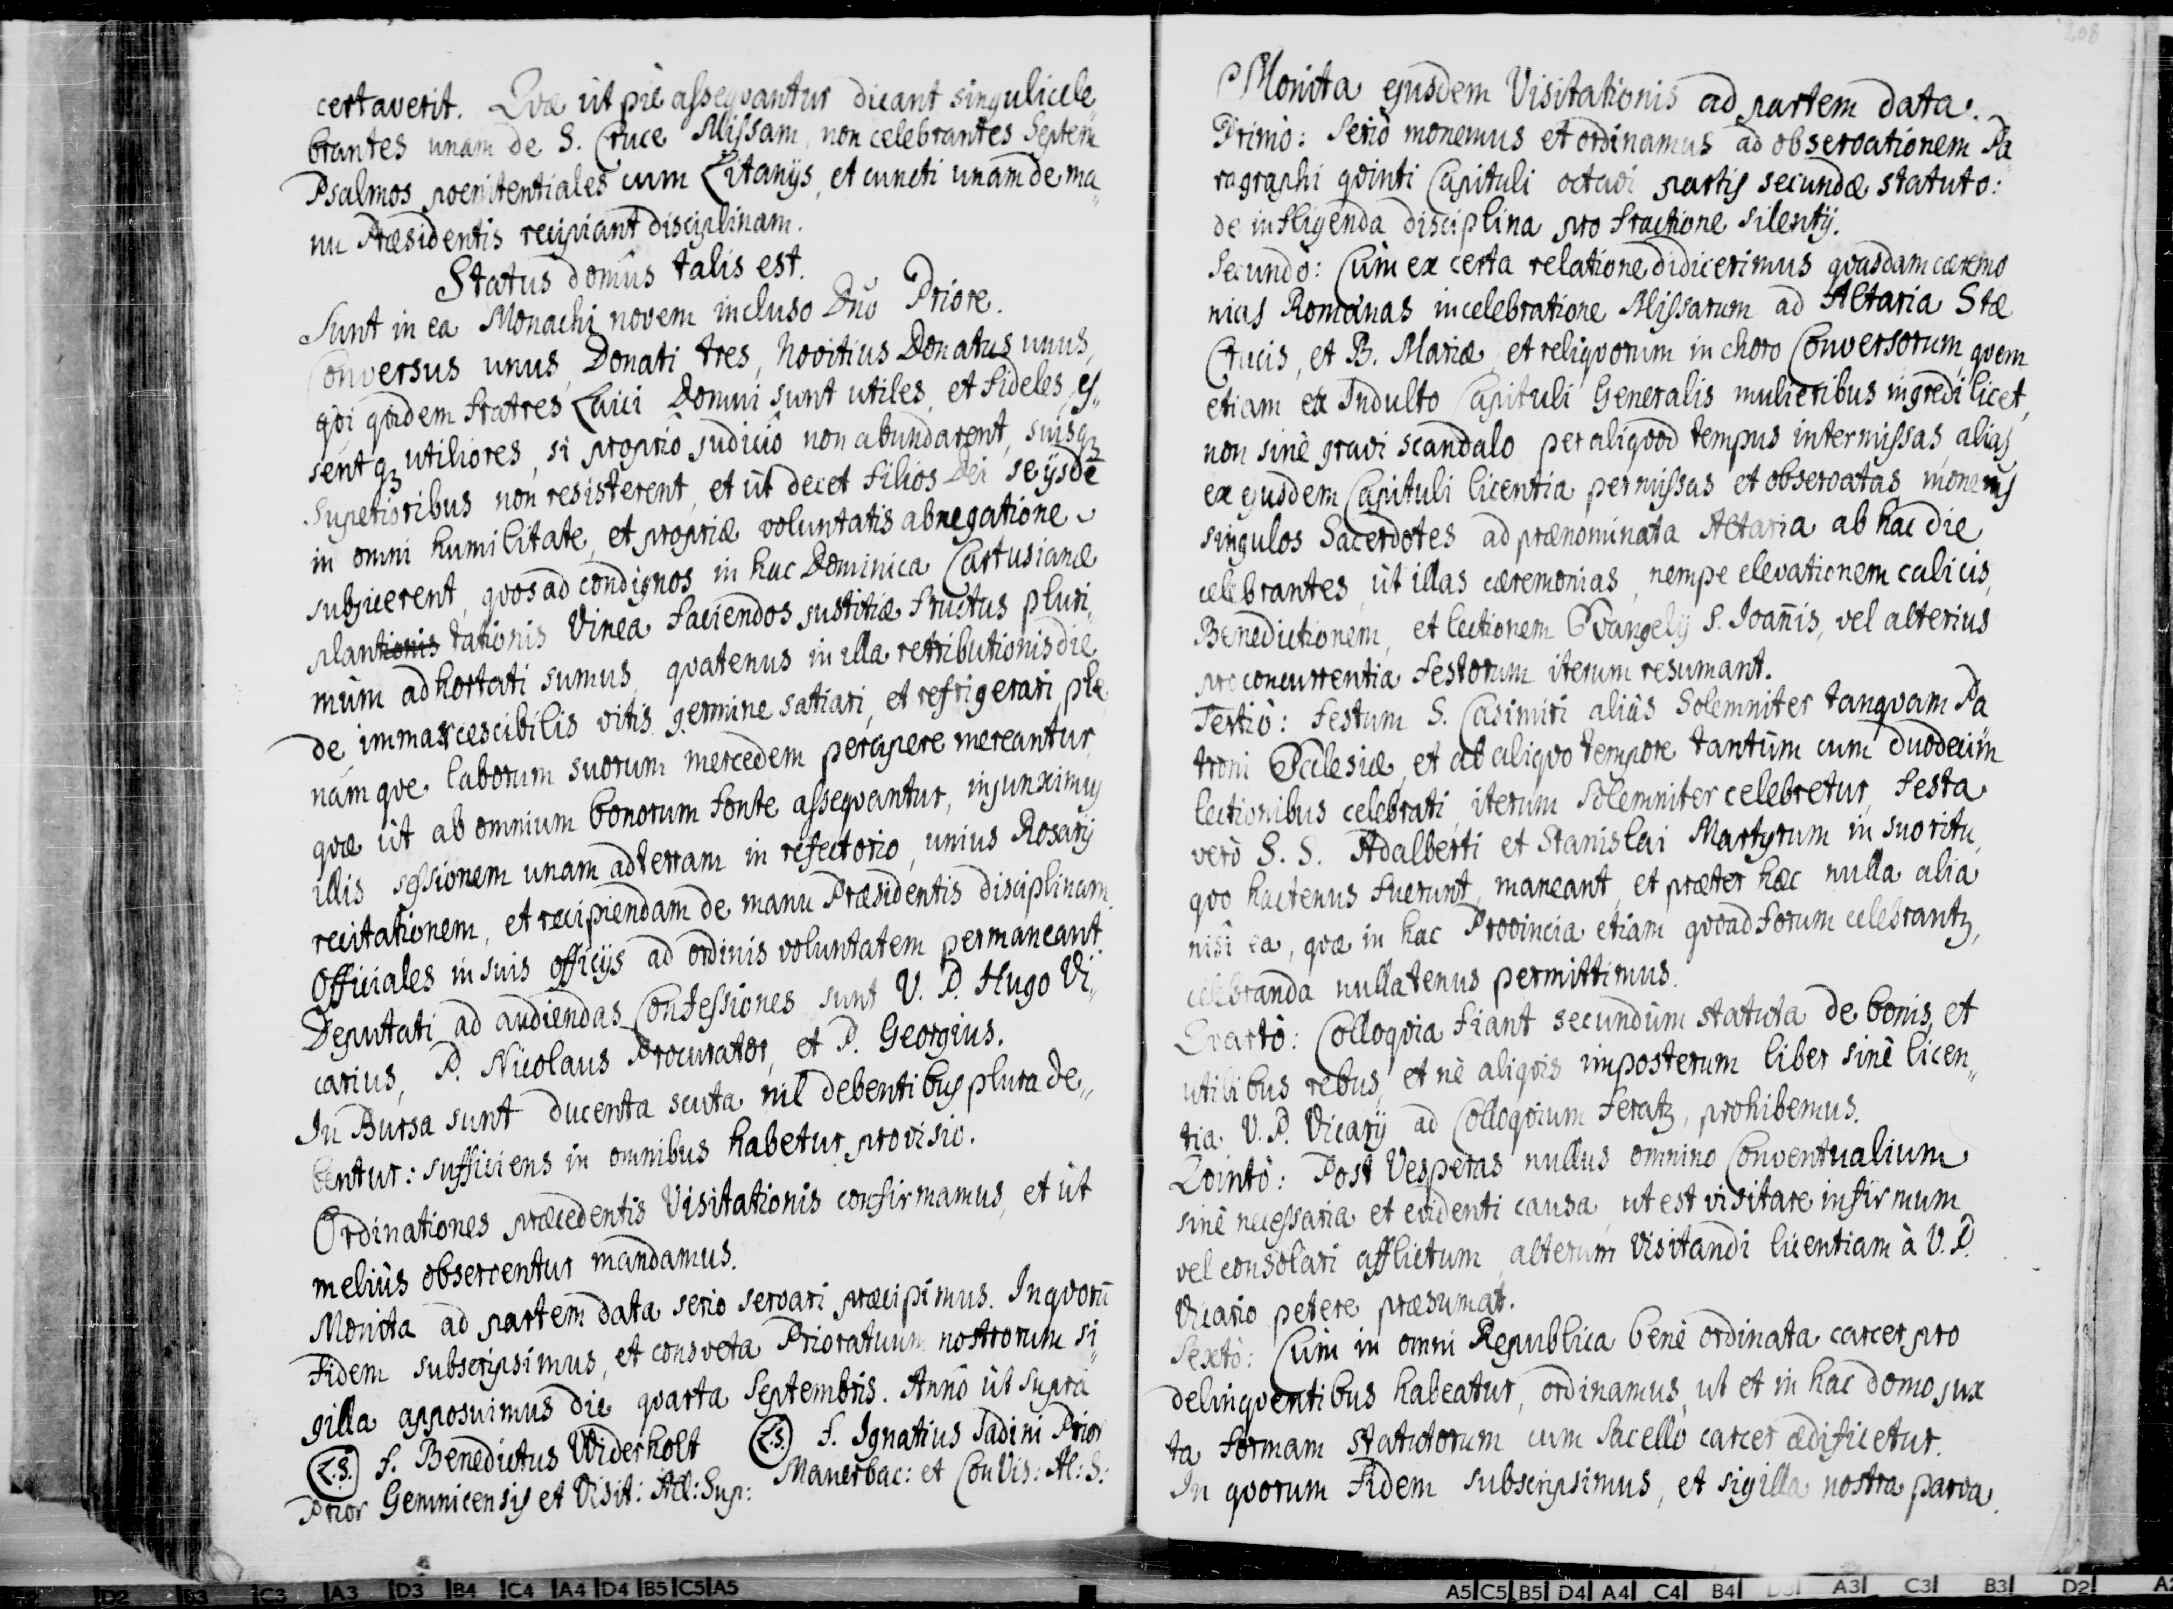 certaverit. Qvæ ùt piè assequantur dicant singuli cele„
brantes unam de S. Cruce Missam, non celebrantes Septem
Psalmos poenitentiales cum Litanijs, et cuncti unam de ma„
nu Præsidentis recipiant disciplinam.
Status domûs talis est.
Sunt in ea Monachi novem incluso Dno Priore.
Conversus unus, Donati tres, Novitius Donatus unus,
qvi qvidem fratres Laici Domui sunt utiles, et fideles, es„
sentqz utiliores, si propriô judiciô non abundarent, suisqz
Superioribus non resisterent, et ùt decet filios Dei se ijsdē
in omni humilitate, et propriæ voluntatis abnegatione
subjicerent, qvos ad condignos in hac Dominica Cartusianæ
plantionis tationis Vinea faciendos justitiæ fructus pluri„
mùm adhortati sumus, qvatenus in illa retributionis die
de immarcescibilis vitis germine satiari, et refrigerari, ple
namqve laborum suorum mercedem percipere mereantur,
qvæ ùt ab omnium bonorum fonte asseqvantur, injunximus
illis sessionem unam ad terram in refectorio, unius Rosarij
recitationem, et recipiendam de manu Præsidentis disciplinam.
Officiales in suis officijs ad ordinis voluntatem permaneant.
Deputati ad audiendas Confessiones sunt V. P. Hugo Vi„
carius, P. Nicolaus Procurator, et P. Georgius.
In Bursa sunt ducenta scuta nil debentibus plura de„
bentur: sufficiens in omnibus habetur provisio.
Ordinationes præcedentis Visitationis confirmamus, et ùt
meliùs observentur mandamus.
Monita ad partem data serio servari præcipimus. In qvorū
fidem subscripsimus, et consveta Prioratuum nostrorum si„
gilla apposuimus die qvarta Septembris. Annô ùt supra
L.S. f. Benedictus Widerholt L.S. f. Ignatius Jadini Prior
Prior Gemnicensis et Visit: Al: Sup: Mauerbac: et Con Vis: Al: S:
208
Monita ejusdem Visitationis ad partem data.
Primò: Seriò monemus et ordinamus ad observationem Pa
ragraphi qvinti Capituli octavi partis secundæ statuto:
de infligenda disciplina pro fractione silentij.
Secundò: Cùm ex certa relatione didicerimus qvasdam cæremo
nias Romanas in celebratione Missarum ad Altaria Stæ
Crucis, et B. Mariæ, et reliqvorum in choro Conversorum, qvem
etiam ex Indulto Capituli Generalis mulieribus ingredi licet,
non sinè gravi scandalo per aliqvod tempus intermissas, alias
ex ejusdem Capituli licentia permissas et observatas monemus
singulos Sacerdotes ad prænominata Altaria ab hac die
celebrantes, ùt illas cæremonias, nempe elevationem calicis,
Benedictionem, et lectionem Evangelij S. Joañis, vel alterius
pro concurrentia festorum iterum resumant.
Tertiò: Festum S. Casimiri aliàs Solemniter tanqvam Pa
troni Ecclesiæ, et ab aliqvo tempore tantùm cum duodecim
lectionibus celebrati, iterum Solemniter celebretur, festa
verò S. S. Adalberti et Stanislai Martyrum in suo ritu,
qvo hactenus fuerunt, maneant, et præter hæc nulla alia
nisi ea, qvæ in hac Provincia etiam qvoad forum celebrantz,
celebranda nullatenus permittimus.
Qvartò: Colloqvia fiant secundùm statuta de bonis, et
utilibus rebus, et nè aliqvis imposterum liber sinè licen„
tia V. P. Vicarij ad Colloqvium feratz, prohibemus.
Qvintò: Post Vesperas nullus omnino Conventualium
sinè necessaria et evidenti causa, ut est visitare infirmum
vel consolari afflictum, alterum visitandi licentiam à V. P.
Vicario petere præsumat.
Sextò: Cùm in omni Republica benè ordinata carcer pro
delinqventibus habeatur, ordinamus, ut et in hac domo jux
ta formam statutorum cum Sacello carcer ædificetur.
In qvorum fidem subscripsimus, et sigilla nostra parva
D2 B3 C3 A3 D3 B4 C4 A4 D4 B5 C5 A5
A5 C5 B5 D4 A4 C4 B4 D3 A3 C3 B3 D2